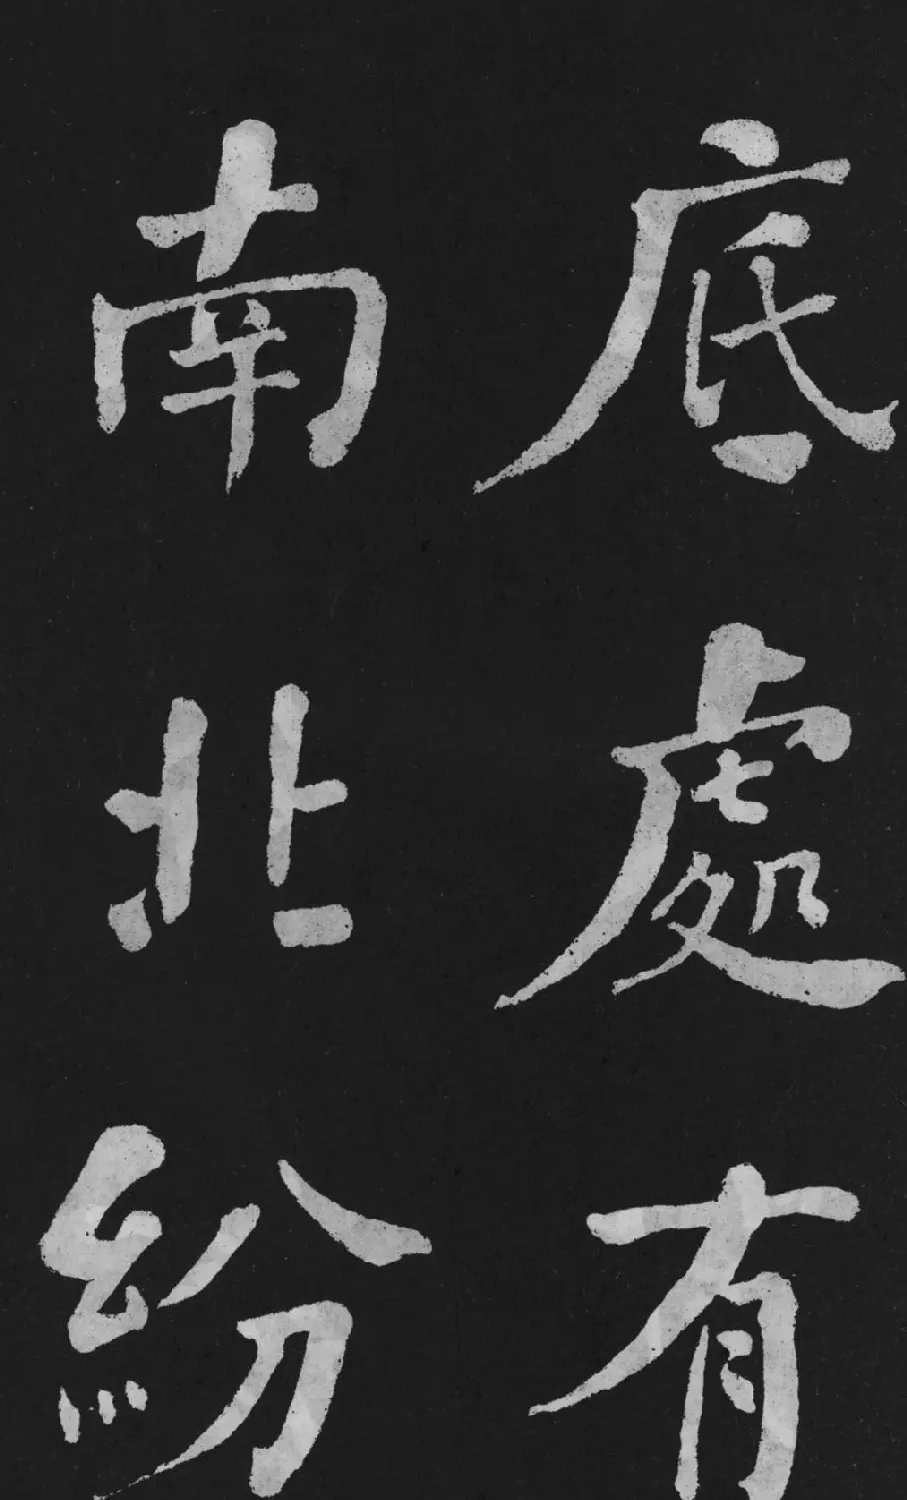 底處有
南北紛